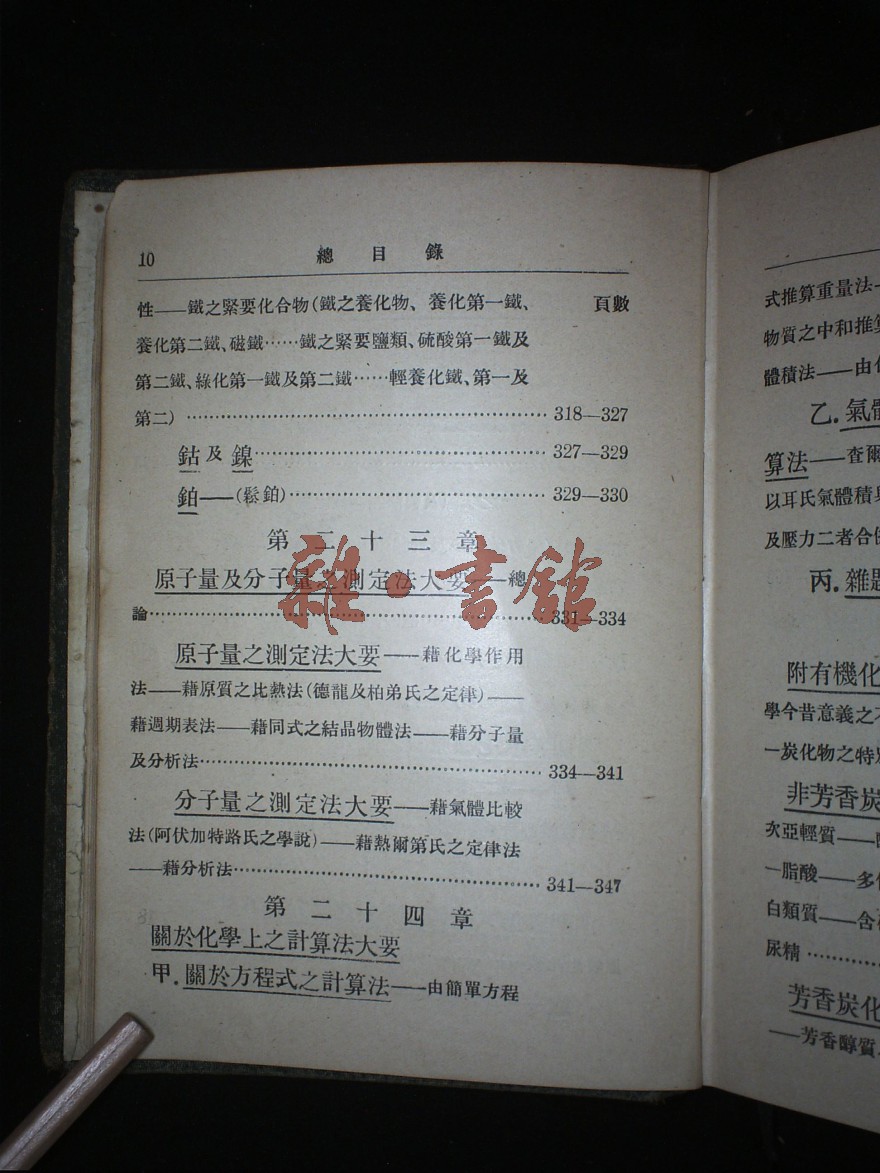 10 總目錄
性——鐵之緊要化合物(鐵之養化物、養化第一鐵、 頁數
養化第二鐵、磁鐵……鐵之緊要鹽類、硫酸第一鐵及
第二鐵、綠化第一鐵及第二鐵……輕養化鐵、第一及
第二) …… 318—327
鈷及鎳…… 327—329
鉑——(鬆鉑)…… 329—330
第二十三章
原子量及分子量之測定法大要——總
論…… 331—334
原子量之測定法大要——藉化學作用
法——藉原質之比熱法(德龍及柏弟氏之定律)——
藉週期表法——藉同式之結晶物體法——藉分子量
及分析法…… 334—341
分子量之測定法大要——藉氣體比較
法(阿伏加特路氏之學說)——藉熱爾第氏之定律法
——藉分析法…… 341—347
第二十四章
關於化學上之計算法大要
甲.關於方程式之計算法——由簡單方程
雜·書館
式推算重量法—
物質之中和推算
體積法——由化
乙.氣體
算法——查爾
以耳氏氣體積與
及壓力二者合併
丙.雜題
附有機化
學今昔意義之不
一炭化物之特別
非芳香炭
次亞輕質——
一脂酸——多價
白類質——含
尿精……
芳香炭化
——芳香醇質